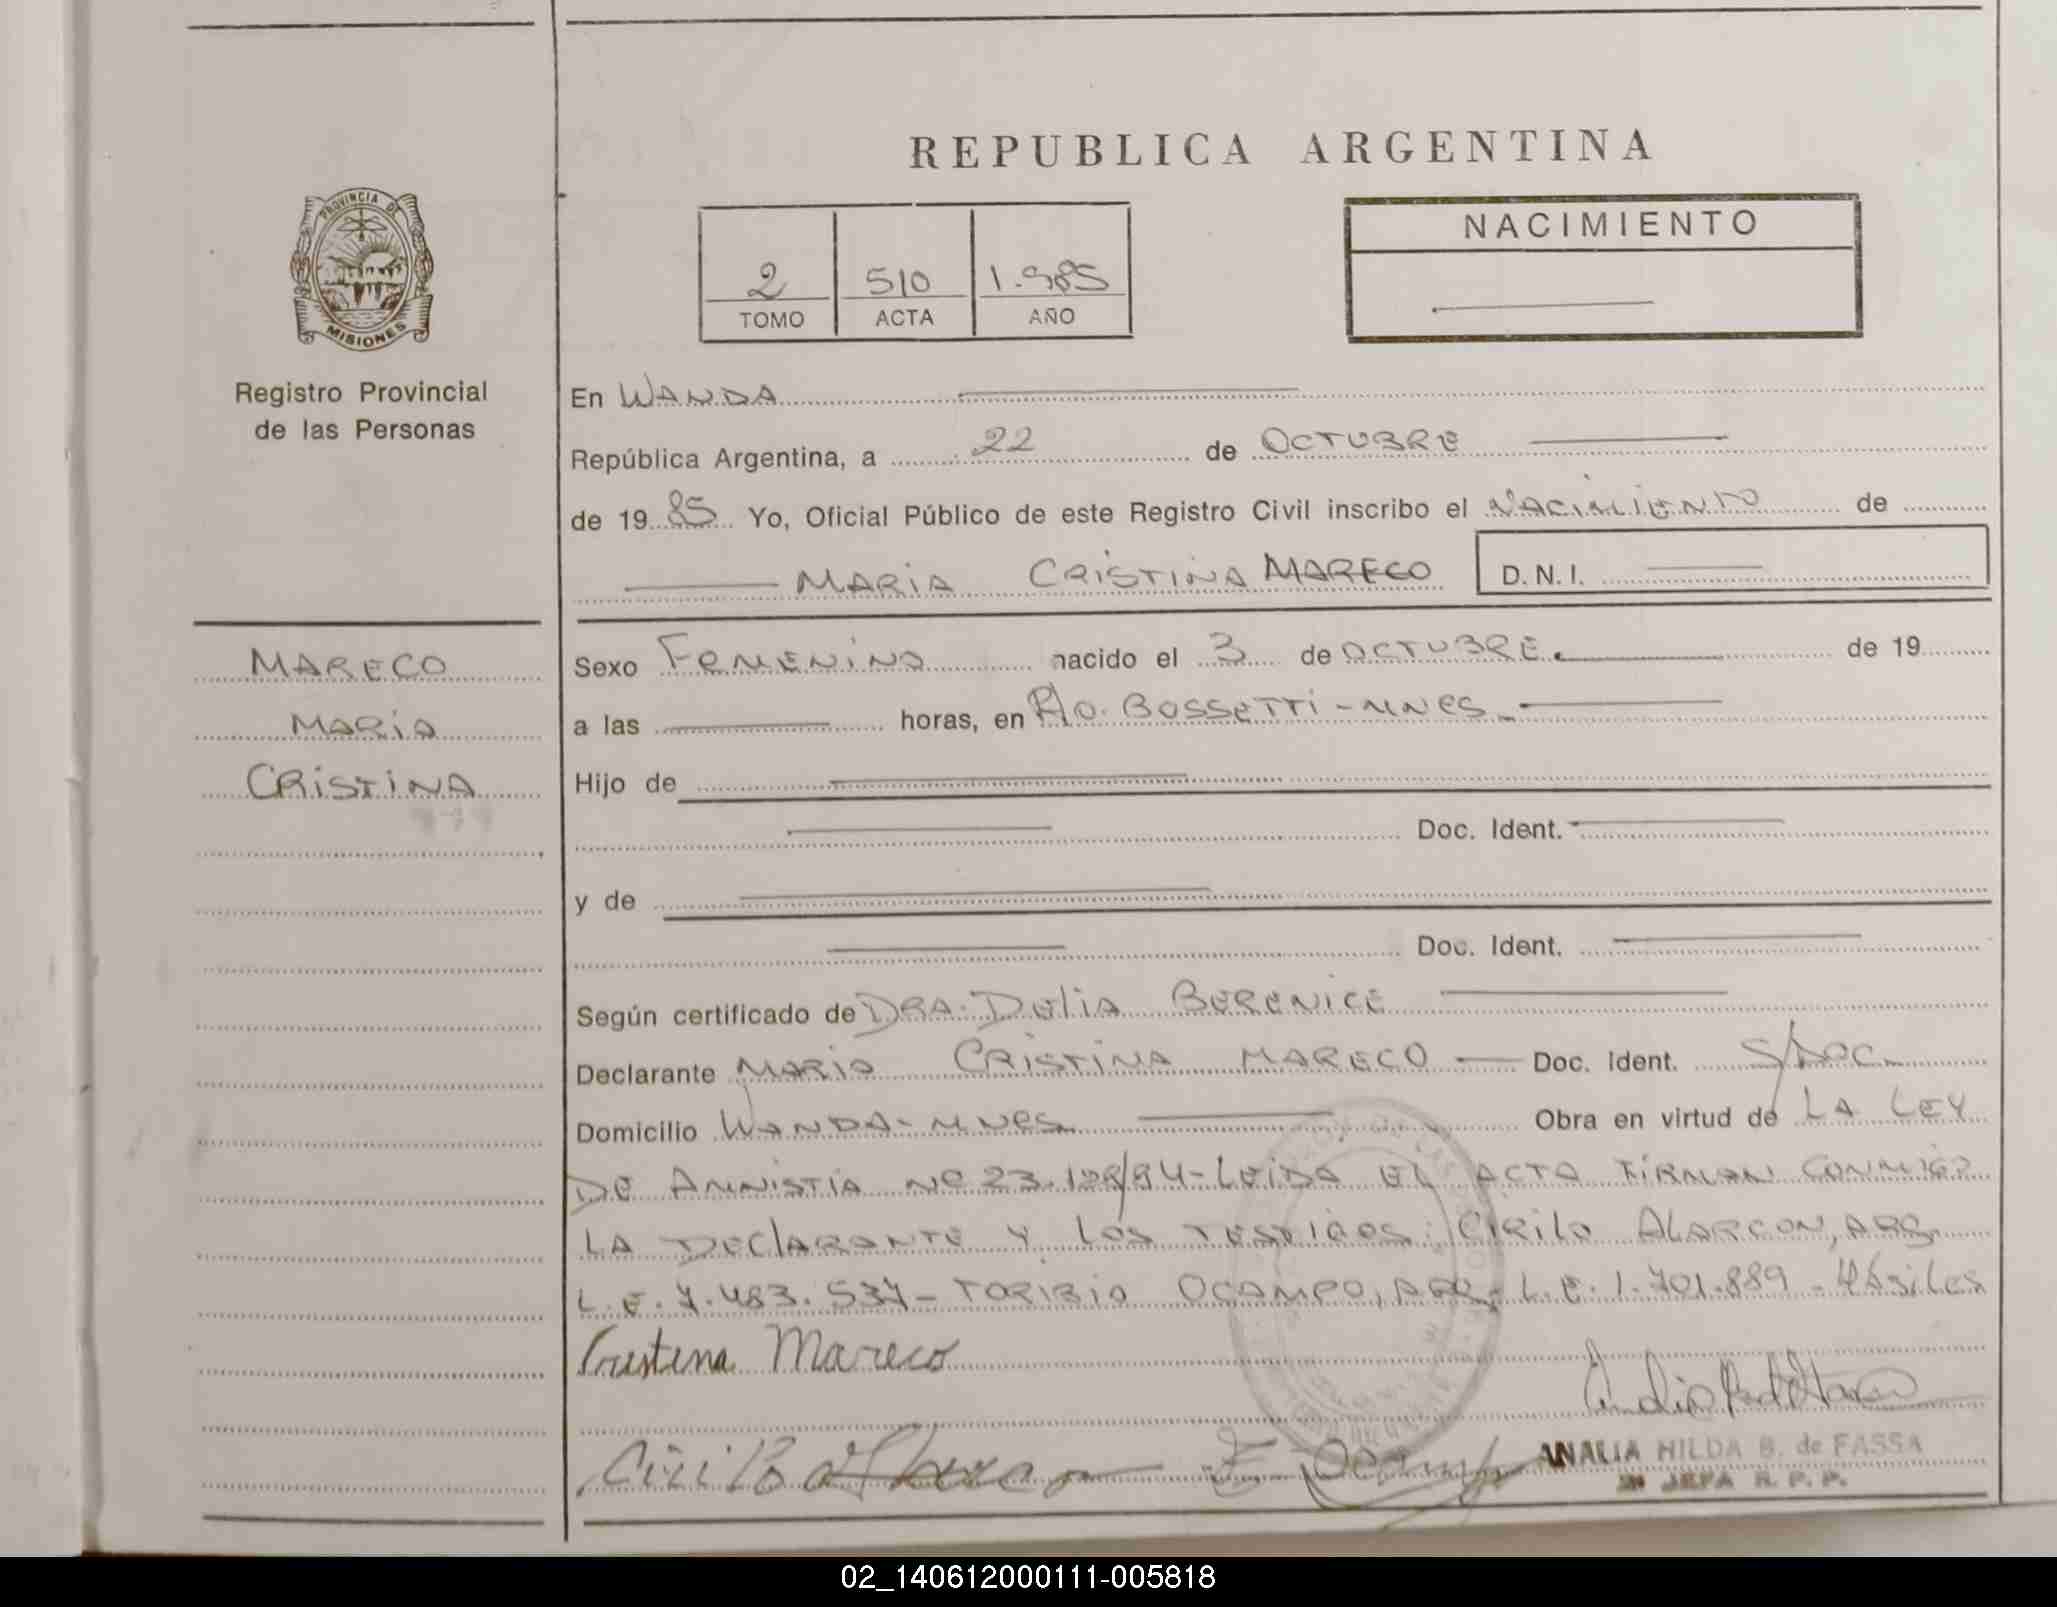 REPUBLICA ARGENTINA
PROVINCIA DE
MISIONES
Registro Provincial
de las Personas
2 510 1.985
TOMO ACTA AÑO
NACIMIENTO
En WANDA
República Argentina, a 22 de OCTUBRE
de 1985 Yo, Oficial Público de este Registro Civil inscribo el NACIMIENTO de
MARIA CRISTINA MARECO D.N.I.
MARECO
MARIA
CRISTINA
Sexo FEMENINO nacido el 3 de OCTUBRE. de 19
a las horas, en Pto. BOSSETTI-MNES
Hijo de
Doc. Ident.
y de
Doc. Ident.
Según certificado de DRA. DELIA BERENICE
Declarante MARIA CRISTINA MARECO Doc. Ident. S/DOC
Domicilio WANDA-MNES Obra en virtud de LA LEY
DE AMNISTIA Nº 23.128/84-LEIDA EL ACTA FIRMAN CONMIGO
LA DECLARANTE Y LOS TESTIGOS: CIRILO ALARCON, ARG.
L.E. 7.483.537- TORIBIO OCAMPO, ARG. L.E. 1.701.889-
Cristina Mareco
Cirilo Alarcon Ocampo
ANALIA HILDA B. de FASSA
JEFA R. P. P.
02_140612000111-005818